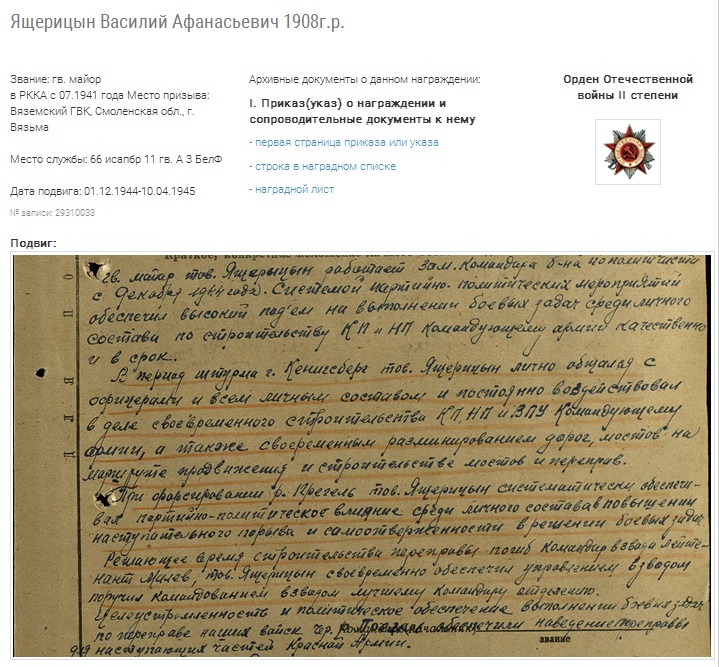 Ящерицын Василий Афанасьевич 1908г.р.
Звание: гв. майор
в РККА с 07.1941 года Место призыва:
Вяземский ГВК, Смоленская обл., г.
Вязьма
Место службы: 66 исапбр 11 гв. А 3 БелФ
Дата подвига: 01.12.1944-10.04.1945
№ записи: 29310033
Архивные документы о данном награждении:
I. Приказ(указ) о награждении и
сопроводительные документы к нему
- первая страница приказа или указа
- строка в наградном списке
- наградной лист
Орден Отечественной
войны II степени
Подвиг:
Краткое, конкретное
Гв. майор тов. Ящерицын работает зам. Командира б-на по политчасти
с Декабря 1944 года. Системой партийно-политических мероприятий
обеспечил высокий под'ем на выполнении боевых задач среди личного
состава по строительству КП и НП Командующему армии качественно
и в срок.
В период штурма г. Кенигсберг тов. Ящерицын лично общался с
офицерами и всем личным составом и постоянно воздействовал
в деле своевременного строительства КП, НП и ВПУ Командующему
армии, а также своевременным разминированием дорог, мостов на
маршруте продвижения и строительстве мостов и переправ.
При форсировании р. Прегель тов. Ящерицын систематически обеспечи-
вал партийно-политическое влияние среди личного состава в повышении
наступательного порыва и самоотверженности в решении боевых задач.
Решающее время строительства переправы погиб командир взвода лейте-
нант тов. Ящерицын своевременно обеспечил управлением взводом
поручил командованием взводом лучшему командиру отделению.
Целеустремленность и политическое обеспечение выполнении боевых задач
по переправе наших войск ч/р. Прегель обеспечили наведение переправы
для наступающих частей Красной Армии.
звание